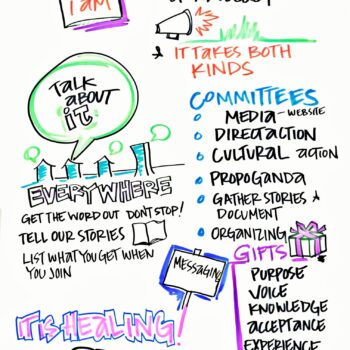 I am
& IT TAKES BOTH
KINDS
TALK
ABOUT
it
EVERYWHERE
GET THE WORD OUT DON'T STOP!
TELL OUR STORIES
LIST WHAT YOU GET WHEN
YOU JOIN
COMMITTEES
MEDIA - WEBSITE
DIRECT ACTION
CULTURAL action
PROPOGANDA
GATHER STORIES &
DOCUMENT
ORGANIZING
MESSAGING
GIFTS
PURPOSE
VOICE
KNOWLEDGE
ACCEPTANCE
EXPERIENCE
IT IS HEALING!